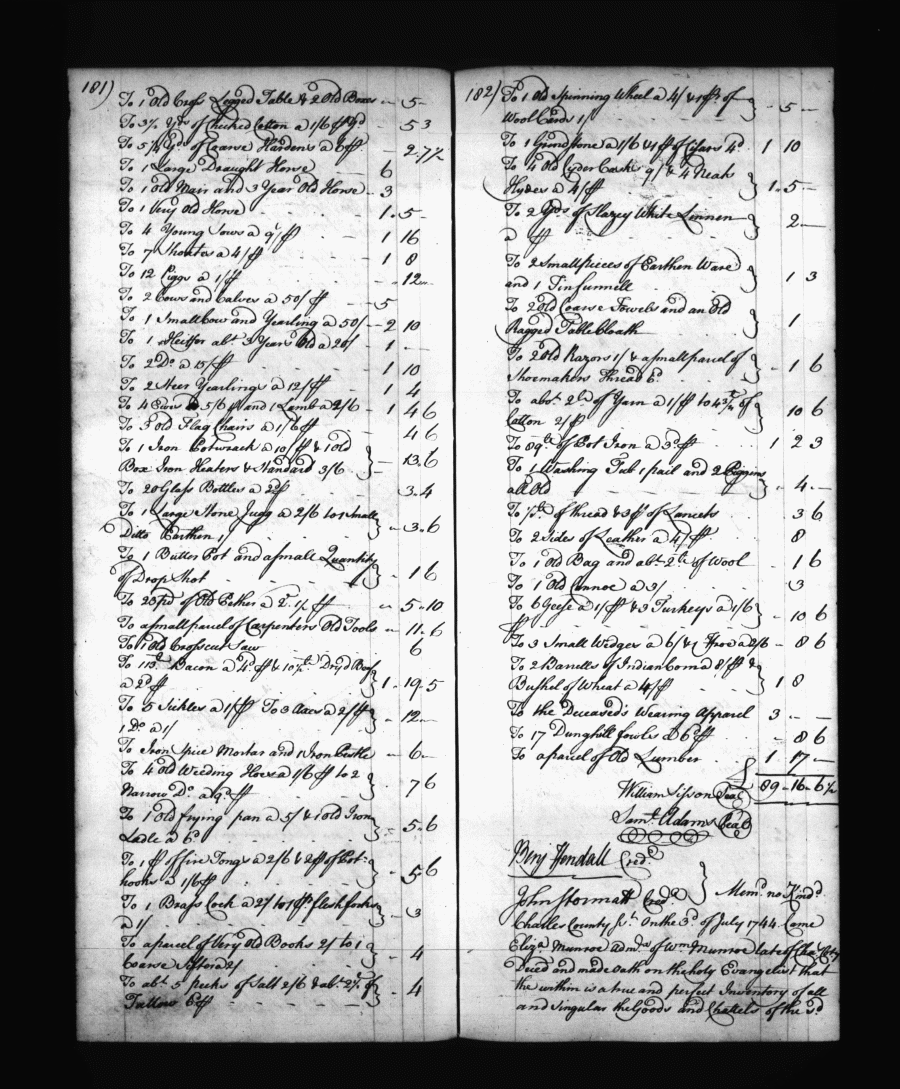 181)
To 1 Old Cross Legged Table & 2 Old Boxes - 5 -
To 3½ Yds of Checked Cotton a 1/6 ⅌ Yd 5 3
To 5¼ Yds of Coarse Hardens a 6 ⅌ - 2.7½
To 1 Large Draught Horse 6
To 1 Old Mair and 3 Year Old Horse - 3
To 1 Very Old Horse 1 - 5 -
To 4 Young Sows a 9/ ⅌ 1 16
To 7 Shoates a 4/ ⅌ 1 8
To 12 Piggs a 1/ ⅌ - 12 -
To 2 Cows and Calves a 50/ ⅌ - 5
To 1 Small Cow and Yearling a 50/ - 2 10
To 1 Heiffer abt 3 Years Old a 20/ - 1 -
To 2 Do a 15/ ⅌ 1 10
To 2 Steer Yearlings a 12/ ⅌ 1 4
To 4 Ewes a 5/6 ⅌ and 1 Lamb a 2/6 - 1 4 6
To 3 Old Flag Chairs a 1/6 ⅌ 4 6
To 1 Iron Potwrack a 10/ ⅌ & 1 Old
Box Iron Heaters & Standard 3/6 - 13.6
To 20 Glass Bottles a 2d ⅌ 3.4
To 1 Large Stone Jugg a 2/6 to 1 Small
Ditto Earthen 1/ - 3.6
To 1 Butter Pot and a small Quantity
of Drop Shot - 1 6
To 20 of Old Pewther a ⅌ - 5 - 10
To a small parcel of Carpenters Old Tools - 11.6
To 1 Old Crosscut Saw 6
To 113 Bacon a 4d ⅌ & 10 Dryd Beef
a 2d ⅌ 1 - 19.5
To 5 Sickles a 1/ ⅌ To 3 Axes a 2/ ⅌
1 Do a 1/ - 12 -
To Iron Spice Mortar and 1 Iron Pestle - 6 -
To 4 Old Weeding Hoes a 1/6 ⅌ to 2
Narrow Do a 9d ⅌ 7 6
To 1 Old frying pan a 5/ & 1 Old Iron
Ladle a 6d - 5.6
To 1 ⅌ of fire Tongs a 2/6 & 2 ⅌ of Pot
hooks a 1/6 ⅌ - 5 6
To 1 Brass Cock a 2/ to 1 flesh fork
a 1/ - 3
To a parcel of Very Old Books 2/ to 1
Coarse Sifter a 2/ - 4
To abt 5 pecks of Salt 2/6 & abt of
Tallow 6d ⅌ - 4
182)
To 1 Old Spinning Wheel a 4/ & 1 ⅌ of
Wool Cards 1/ - 5 -
To 1 Grindstone a 1/6 & 1 ⅌ of 4d 1 10
To 4 Old Cyder Casks 9/ & 4 Neats
Hydes a 4/ ⅌ 1 - 5 -
To 2 Yds of White Linnen
a ⅌ 2 -
To 2 Small pieces of Earthen Ware
and 1 Tin funnell 1 3
To 2 Old Coarse Towels and an Old
Ragged Table Cloath 1
To 2 Old Razors 1/ & a small parcel of
Shoemakers Thread 6d - 1 6
To abot 2 of Yarn a 1/ ⅌ to 4¾ of
Cotton 2/ ⅌ 10 6
To 89 of Pot Iron a 3d ⅌ 1 2 3
To 1 Washing Tub 1 pail and 2 Piggins
all Old - 4 -
To of thread & 3 ⅌ of Lancets 3 6
To 2 Sides of Leather a 4/ ⅌ 8
To 1 Old Bag and abt 2 of Wool - 1 6
To 1 Old Cannoe a 3/ 3
To 6 Geese a 1/ ⅌ & 3 Turkeys a 1/6
⅌ - 10 6
To 3 Small Wedges a 6/ & 1 Froe a 2/6 - 8 6
To 2 Barrells of Indian Corn a 8/ ⅌ &
Bushel of Wheat a 4/ ⅌ 1 8
To the Deceased's Wearing Apparel 3 - -
To 17 Dunghill fowles a 6d ⅌ - 8 6
To a parcel of Old Lumber 1 17 -
£ 89 - 16 - 6½
William Sisson Seal
Saml Adams Seal
Benj Fendall Cred
John Stornatt Credr Memd no Kindd
Charles County Sct. On the 3d of July 1744 Came
Eliza Munroe Admx of Wm Munroe late of Chas Coty
Deced and made oath on the holy Evangelist that
the within is a true and perfect Inventory of all
and singular the Goods and Chattels of the sd